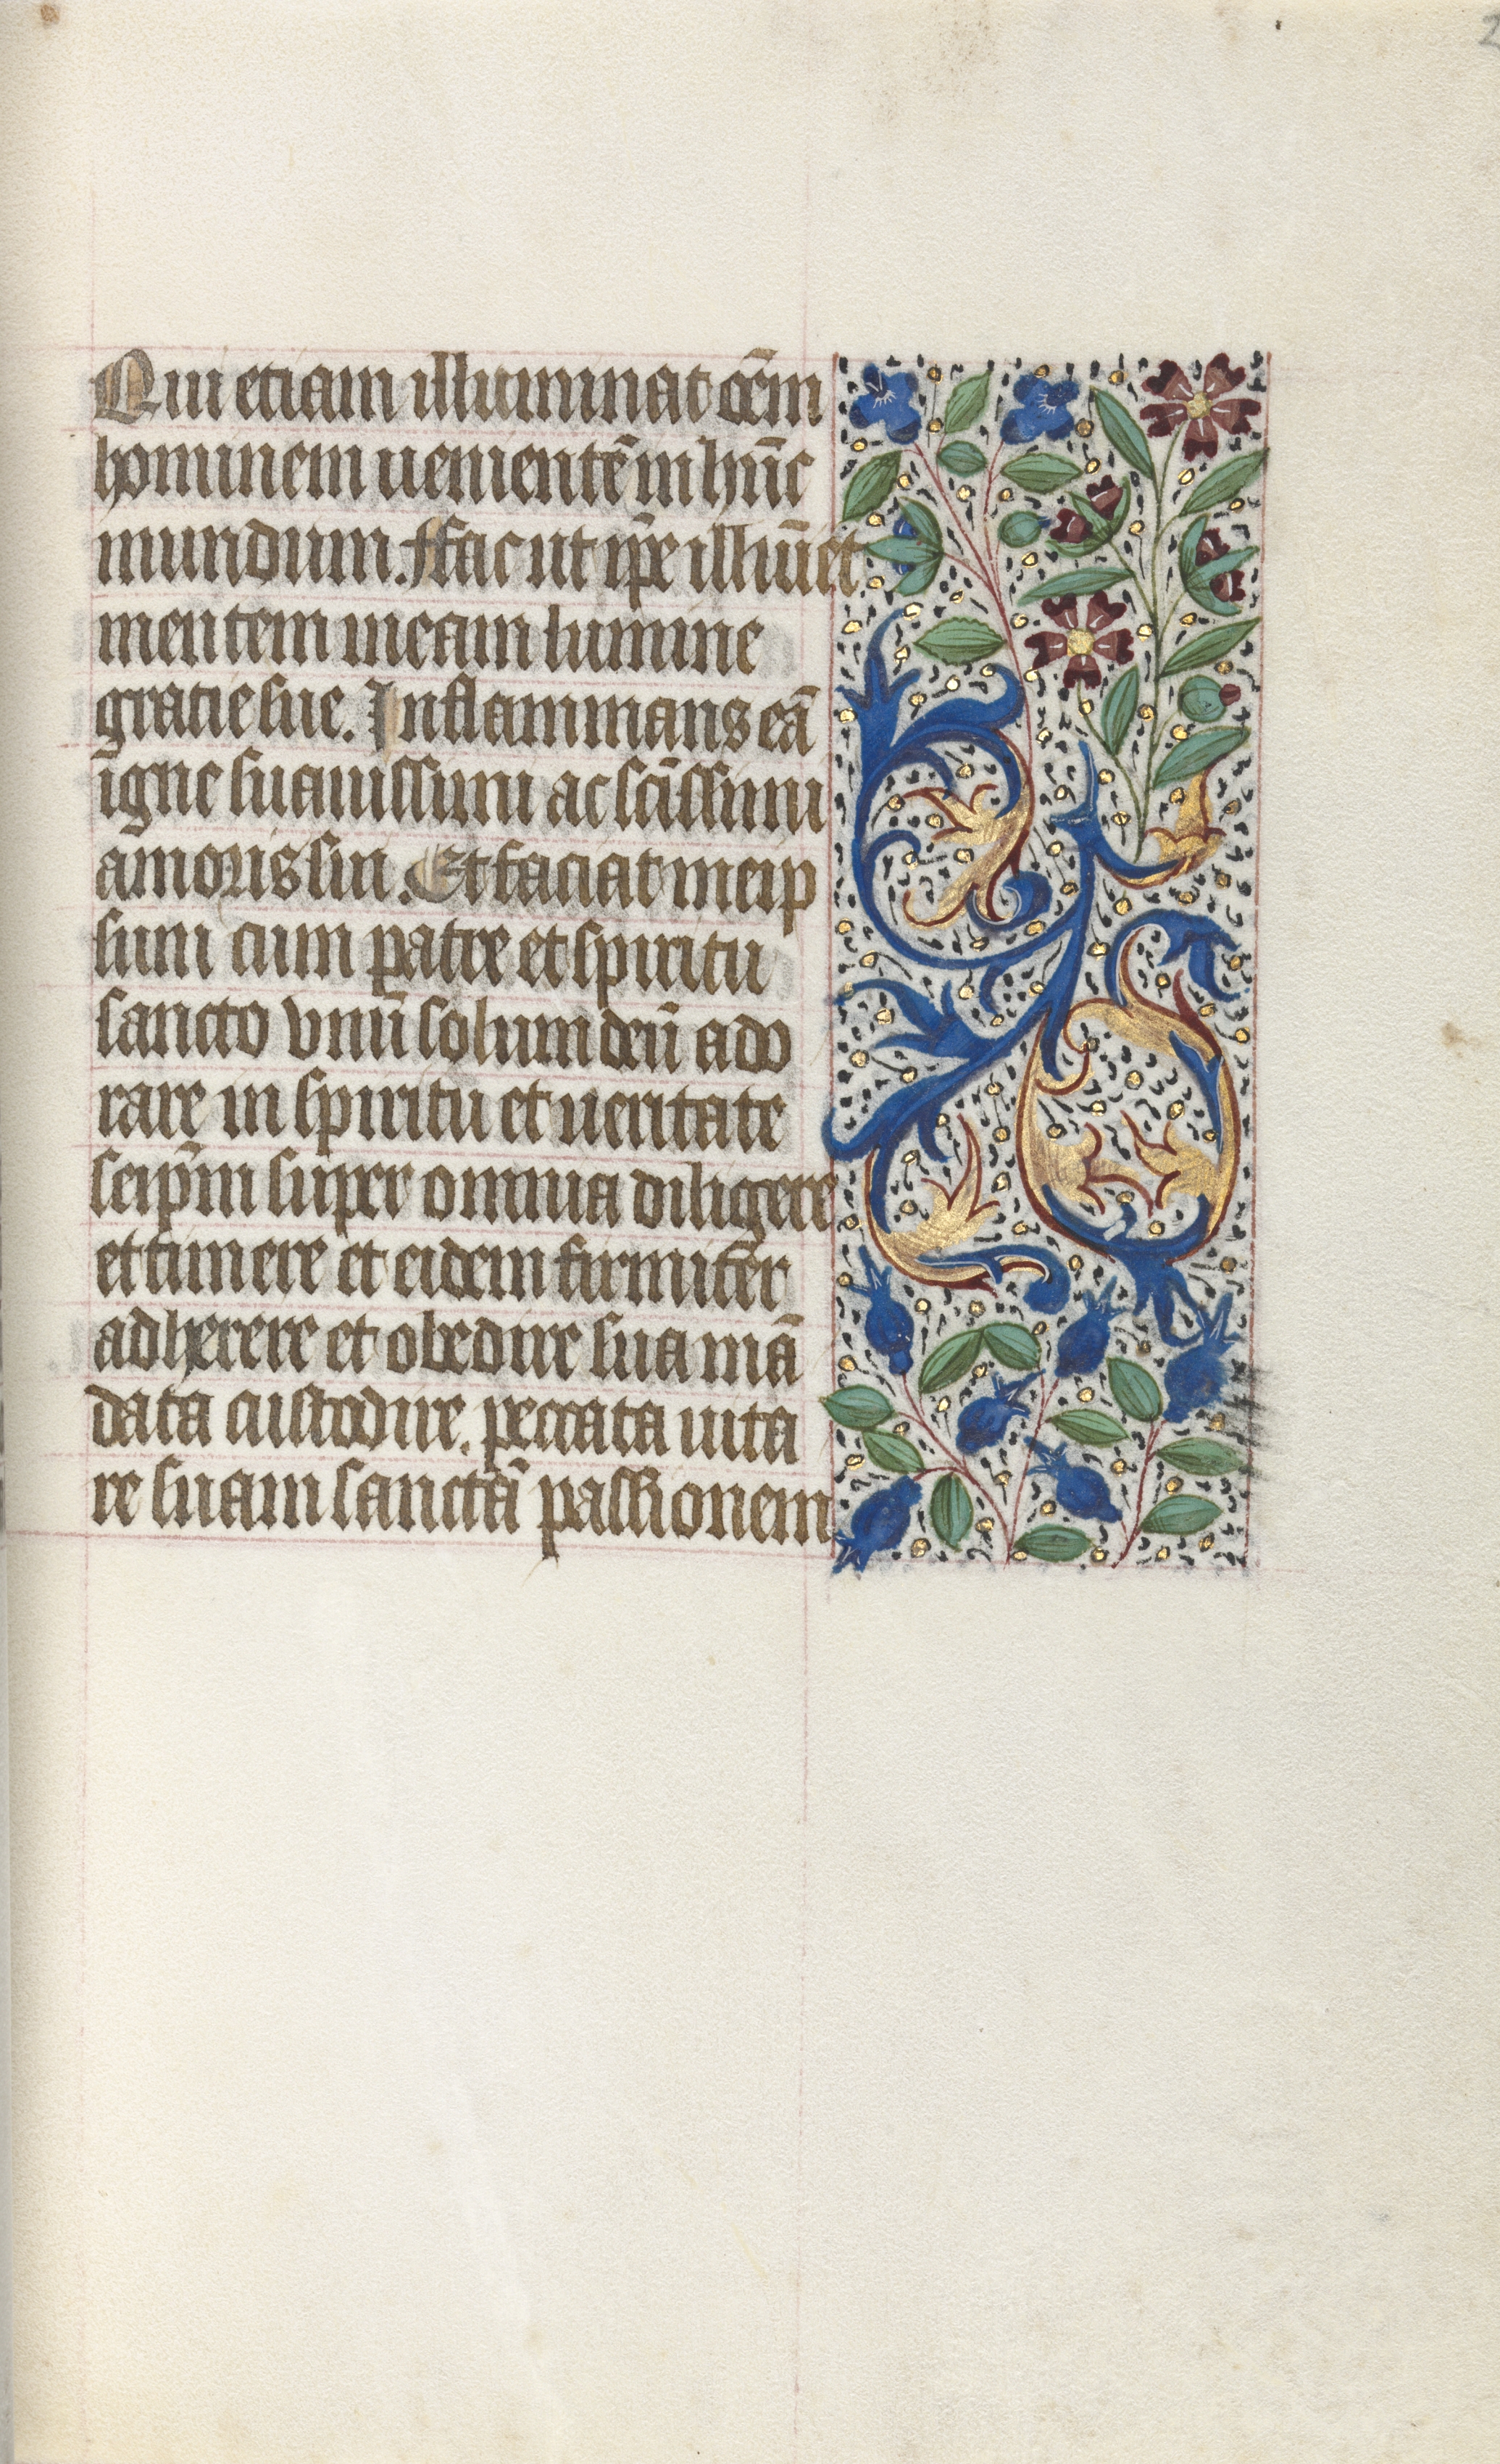 Qui etiam illuminat oēm
hominem uenientē in hūc
mundum. Ffac ut ip̄e illuīet
mentem meam lumine
gratie sue. Inflammans eā
igne suauissimi ac scīssimi
amoris sui. Et faciat me ip
sum cum patre et spiritu
sancto vnū solum deū ado
rare in spiritu et ueritate
seip̄m super omnia diligere
et timere et eidem firmiter
adherere et obedire sua mā
data custodire. peccata uita
re suam sanctā passionem